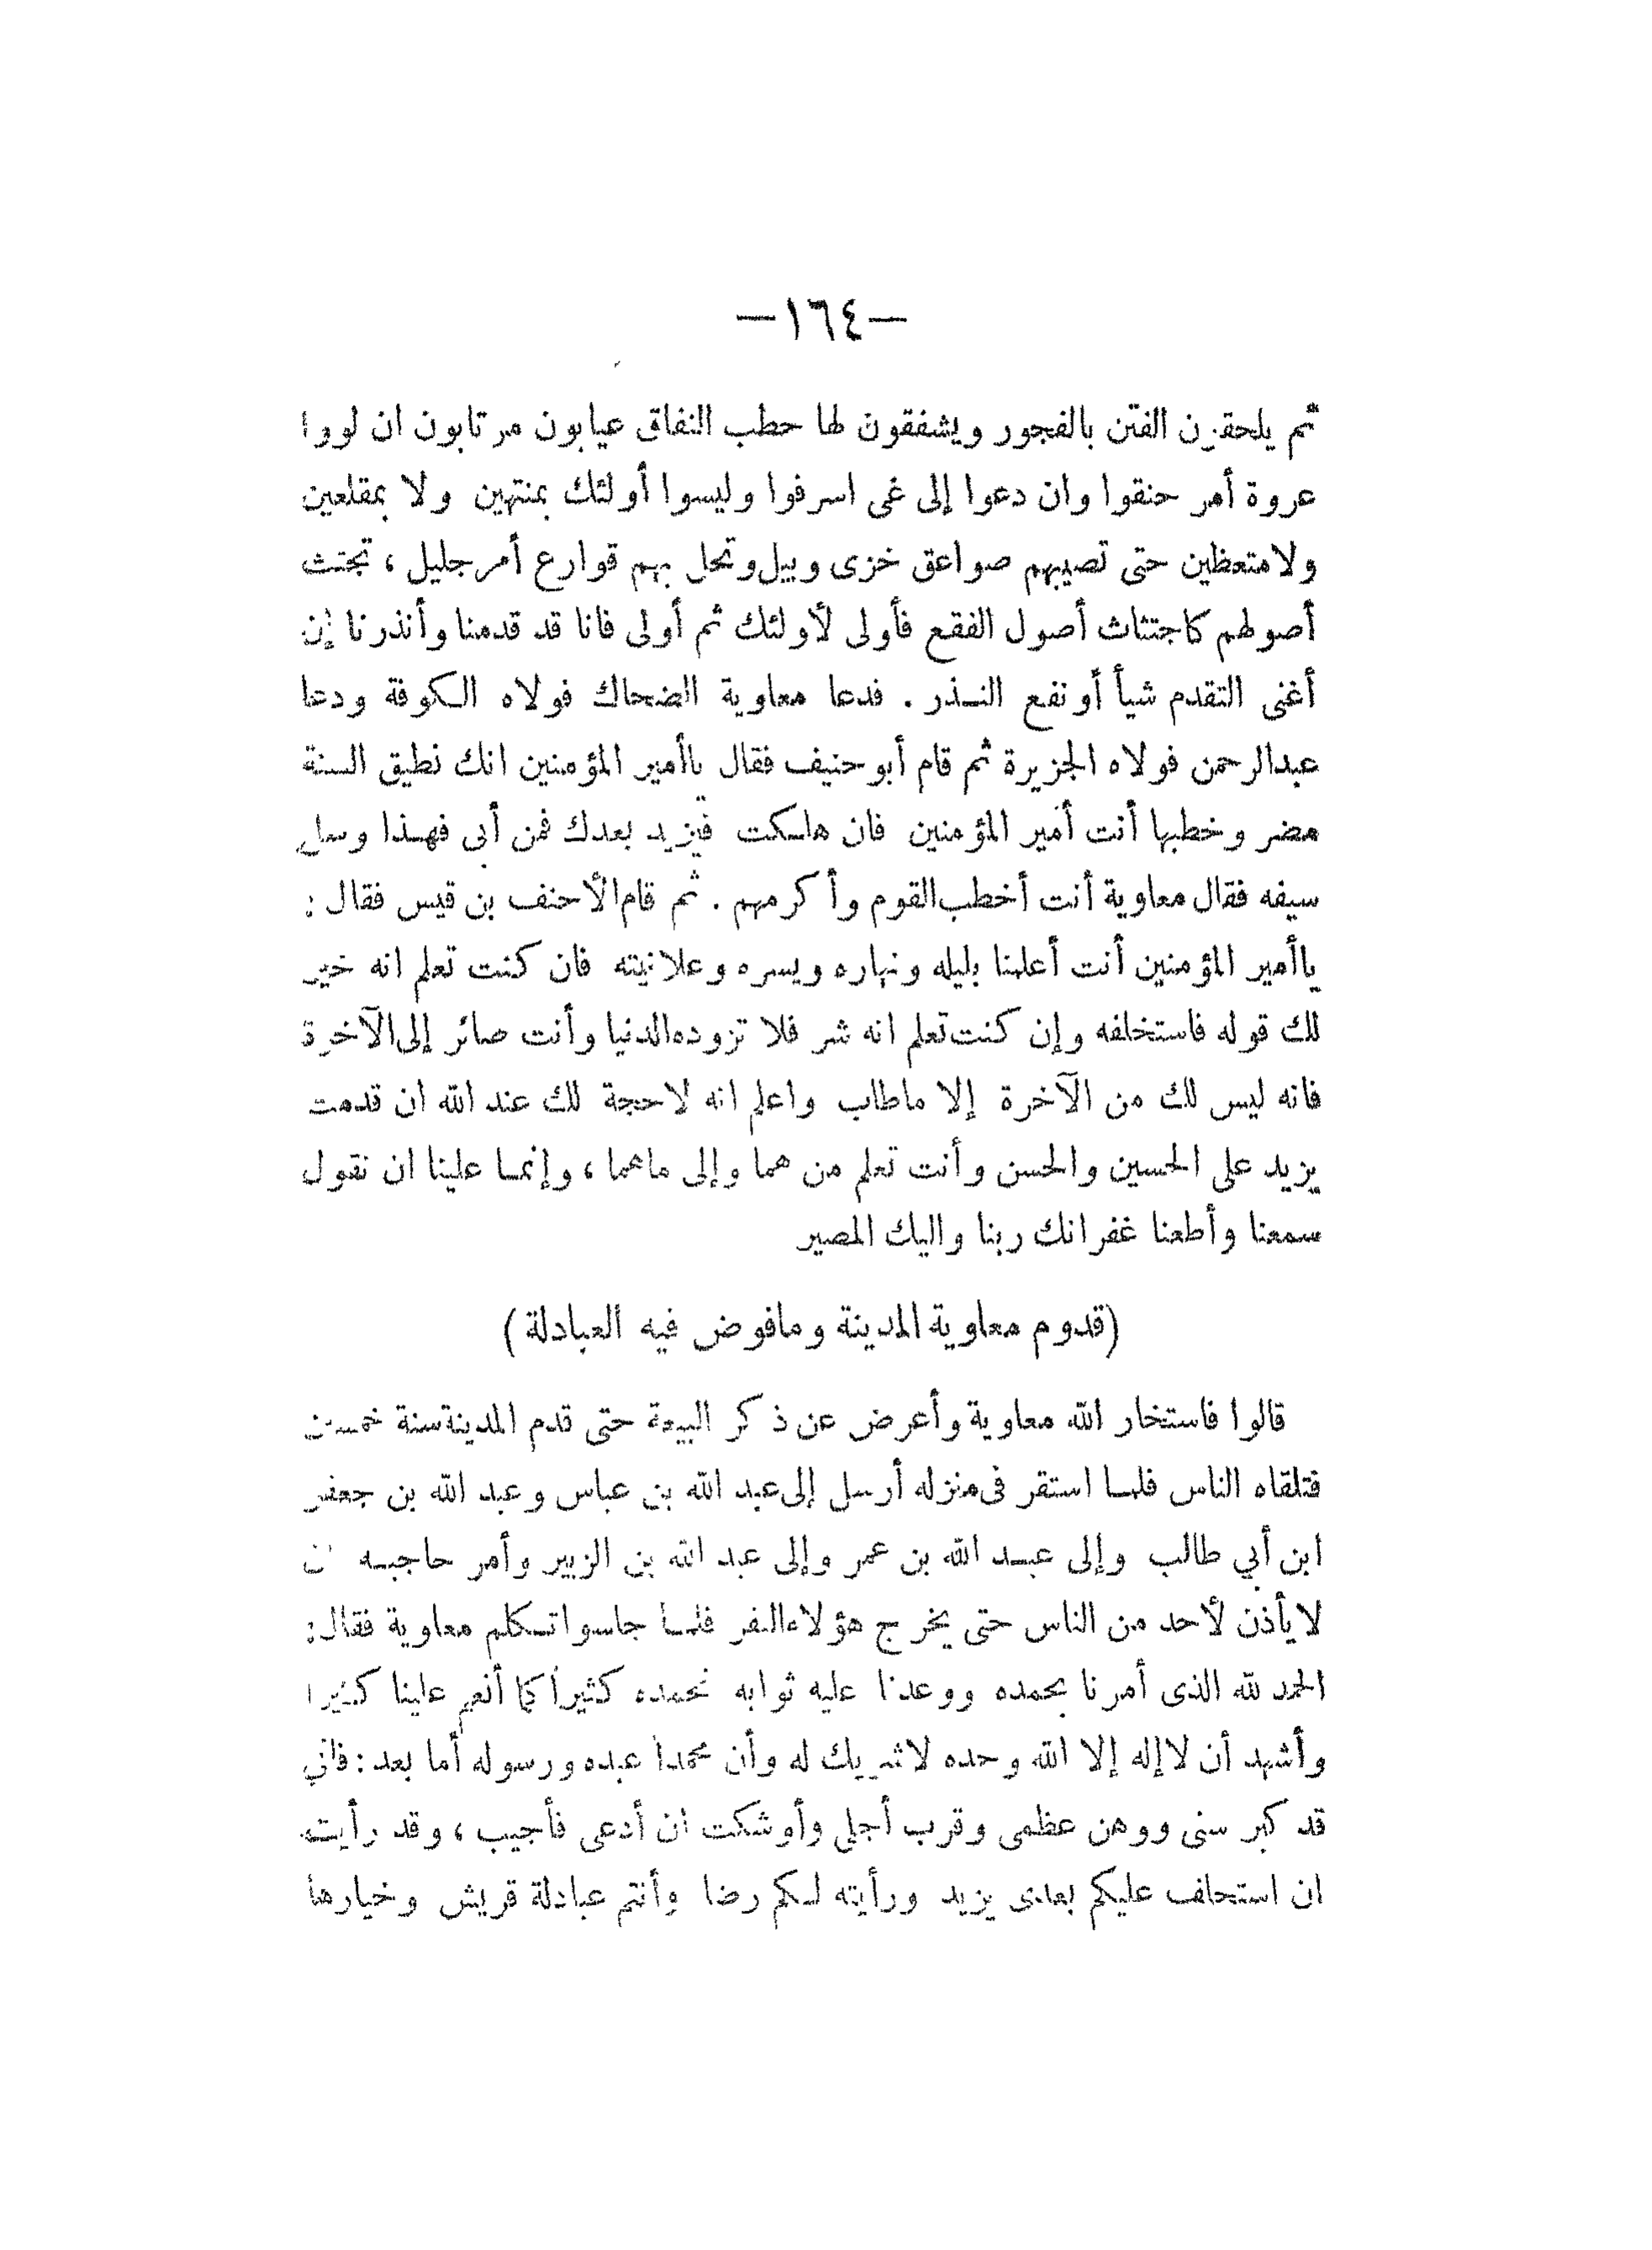 —١٦٤—
ثم يلحقون الفتن بالفجور ويشفقون لها حطب النفاق عيابون مرتابون ان لووا
عروة أمر حنقوا وان دعوا إلى غى اسرفوا وليسوا أولئك بمنتهين ولا بمقلعين
ولامتعظين حتى تصيبهم صواعق خزى وبيل وتحل بهم قوارع أمر جليل ، تجتث
أصولهم كاجتثاث أصول الفقع فأولى لأولئك ثم أولى فانا قد قدمنا وأنذرنا إن
أغنى التقدم شيأ أو نفع النذر . فدعا معاوية الضحاك فولاه الكوفة ودعا
عبدالرحمن فولاه الجزيرة ثم قام أبو حنيف فقال ياأمير المؤمنين انك نطيق السنة
مضر وخطبها أنت أمير المؤمنين فان هلكت فيزيد بعدك فمن أبى فهذا وسل
سيفه فقال معاوية أنت أخطب القوم وأكرمهم . ثم قام الأحنف بن قيس فقال :
ياأمير المؤمنين أنت أعلمنا بليله ونهاره ويسره وعلانيته فان كنت تعلم انه خير
لك قوله فاستخلفه وإن كنت تعلم انه شر فلا تزوده الدنيا وأنت صائر إلى الآخرة
فانه ليس لك من الآخرة إلا ماطاب واعلم انه لاحجة لك عند الله ان قدمت
يزيد على الحسين والحسن وأنت تعلم من هما وإلى ماهما ، وإنما علينا ان نقول
سمعنا وأطعنا غفرانك ربنا واليك المصير
(قدوم معاوية المدينة ومافوض فيه العبادلة)
قالوا فاستخار الله معاوية وأعرض عن ذكر البيعة حتى قدم المدينة سنة خمسين
فتلقاه الناس فلما استقر فى منزله أرسل إلى عبد الله بن عباس وعبد الله بن جعفر
ابن أبي طالب وإلى عبد الله بن عمر وإلى عبد الله بن الزبير وأمر حاجبه ان
لايأذن لأحد من الناس حتى يخرج هؤلاء النفر فلما جلسوا تكلم معاوية فقال:
الحمد لله الذى أمرنا بحمده ووعدنا عليه ثوابه نحمده كثيراً كما أنعم علينا كثيرا
وأشهد أن لاإله إلا الله وحده لاشريك له وأن محمداً عبده ورسوله أما بعد : فاني
قد كبر سنى ووهن عظمى وقرب أجلي وأوشكت ان أدعى فأجيب ، وقد رأيت
ان استخلف عليكم بعدى يزيد ورأيته لكم رضا وأنتم عبادلة قريش وخيارها